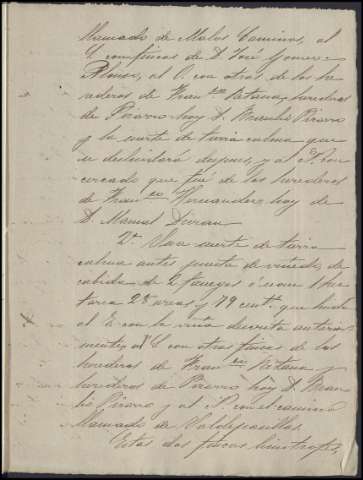 llamado de Malos Caminos, al
S. con fincas de D. José Gomez
Alonso, al O. con otras de los he-
rederos de Fran.co y herederos
de Pizarro hoy D. Pizarro
y la suerte de tierra calma que
se deslindará despues, y al N. con
cercado que fué de los herederos
de Fran.co Hernandez, hoy de
D. Manuel Duran
2.ª Una suerte de tierra
calma antes puesta de viñedo, de
cabida de 2 fanegas ó sean 1 hec-
tarea 28 areas y 79 cent.s que linda
al E. con la viña descrita anterior-
mente, al S. con otras fincas de los
herederos de Fran.co y
herederos de Pizarro, hoy D.
Pizarro y al N. con el camino
llamado de
Estas dos fincas limitrofes,